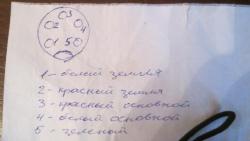 3
2 4
1 5
1 - белый земля
2 - красный земля
3 - красный основной
4 - белый основной
5 - зеленый